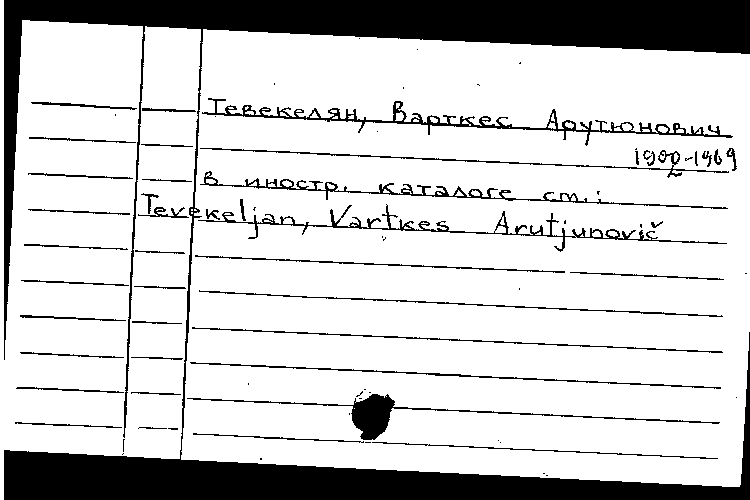 Тевекелян, Варткес Арутюнович
1902-1969
в иностр. каталоге см.:
Tevekeljan, Vartkes Arutjunovič